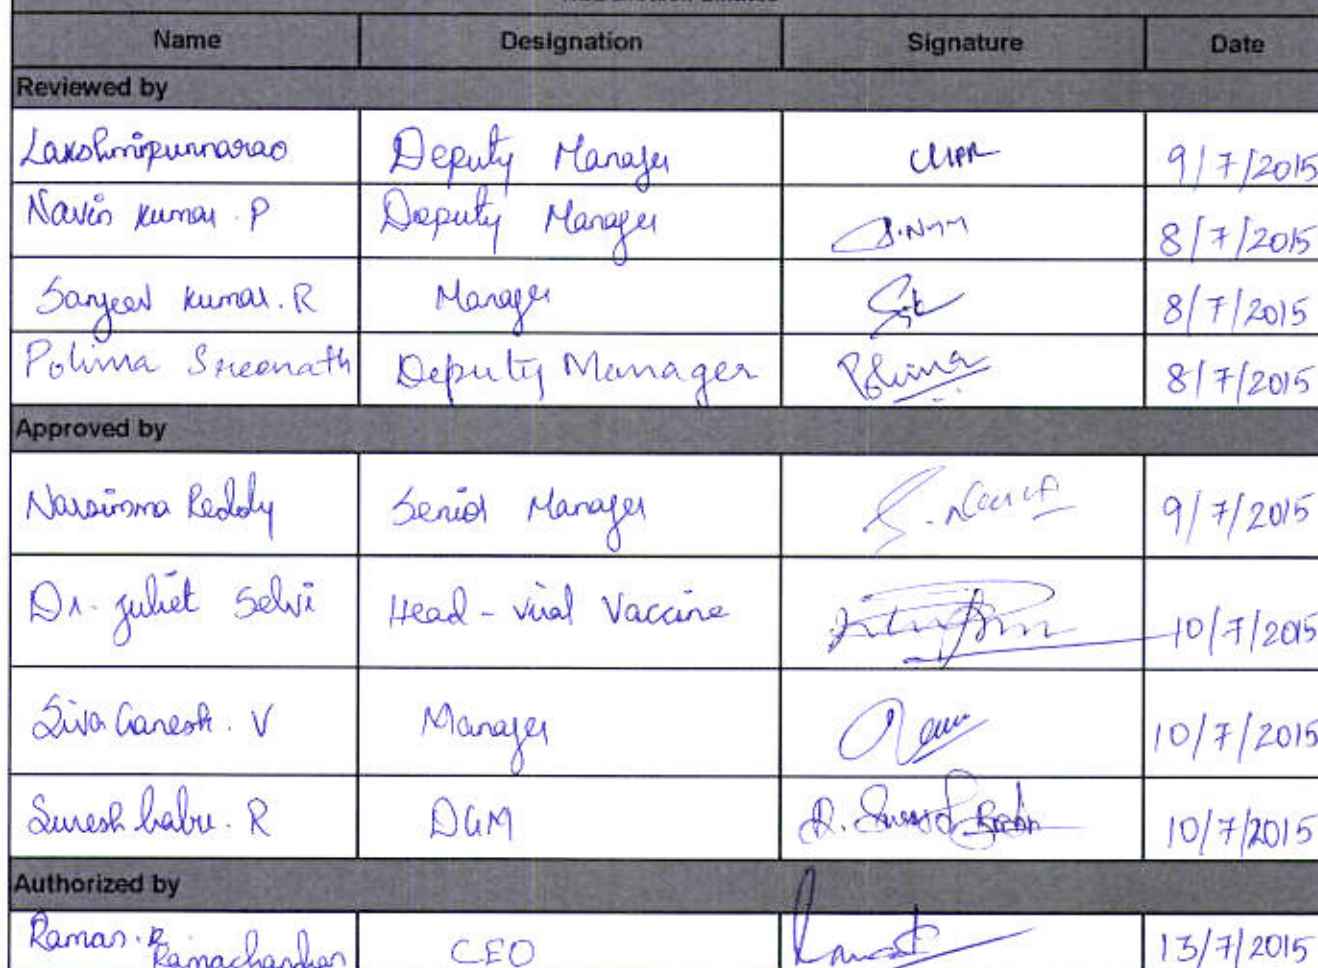 Name Designation Signature Date
Reviewed by
Lakshmipunnarao Deputy Manager 9/7/2015
Navin Kumar. P Deputy Manager 8/7/2015
Sanjeev Kumar. R Manager 8/7/2015
Polima Sreenath Deputy Manager Polima 8/7/2015
Approved by
Narasimma Reddy Senior Manager 9/7/2015
Dr. Juliet Selvi Head - Viral Vaccine 10/7/2015
Siva Ganesh. V Manager 10/7/2015
Suresh babu. R DGM R. Suresh Babu 10/7/2015
Authorized by
Raman. R CEO 13/7/2015
Ramachandran